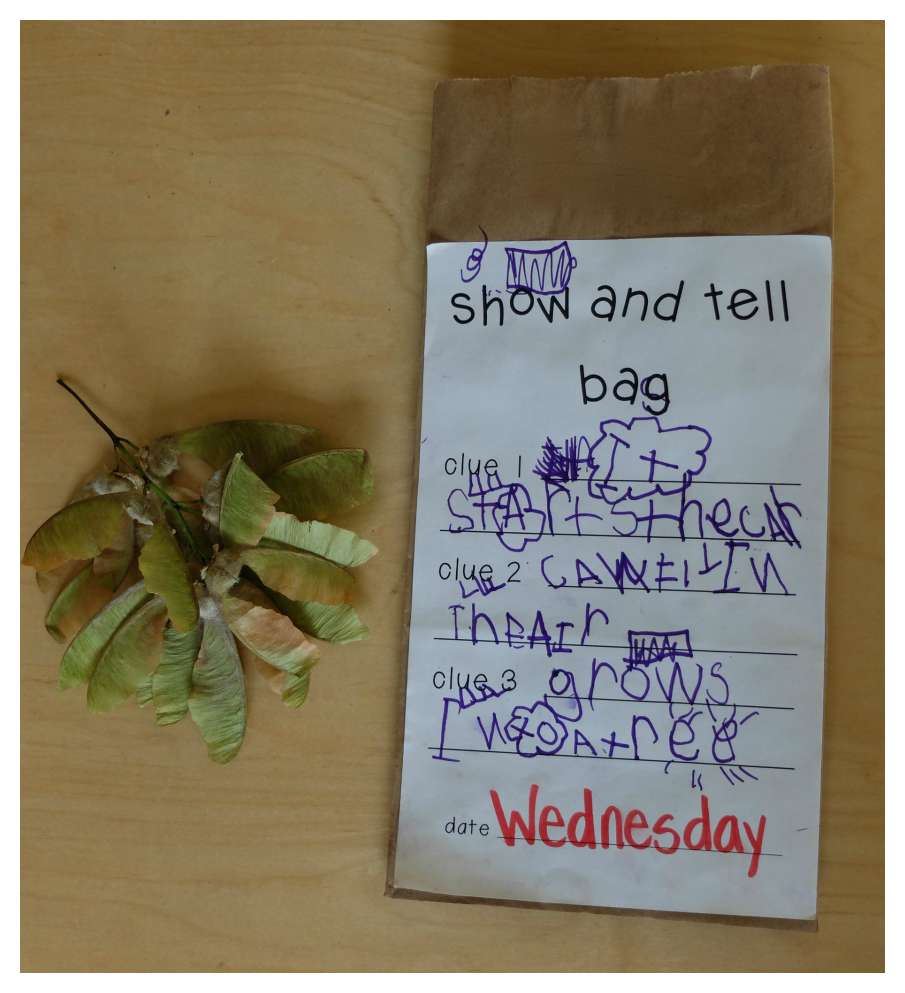 show and tell
bag
clue 1 It
stArts thecAr
clue 2 cAn FlY In
TheAIr
clue 3 grows
IntoAtree
date Wednesday